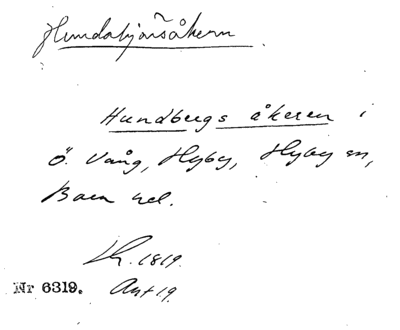 Hundabjärsåkern
Hundbergs åkeren i
Ö. Vång, Hyby, Hyby sn,
Bara hd.
Lh. 1819.
Nr 6319. Ant 19.